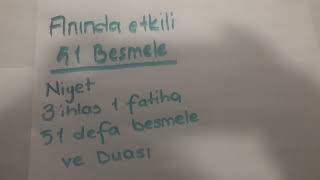 Anında etkili
51 Besmele
Niyet
3 ihlas 1 fatiha
51 defa besmele
ve Duası